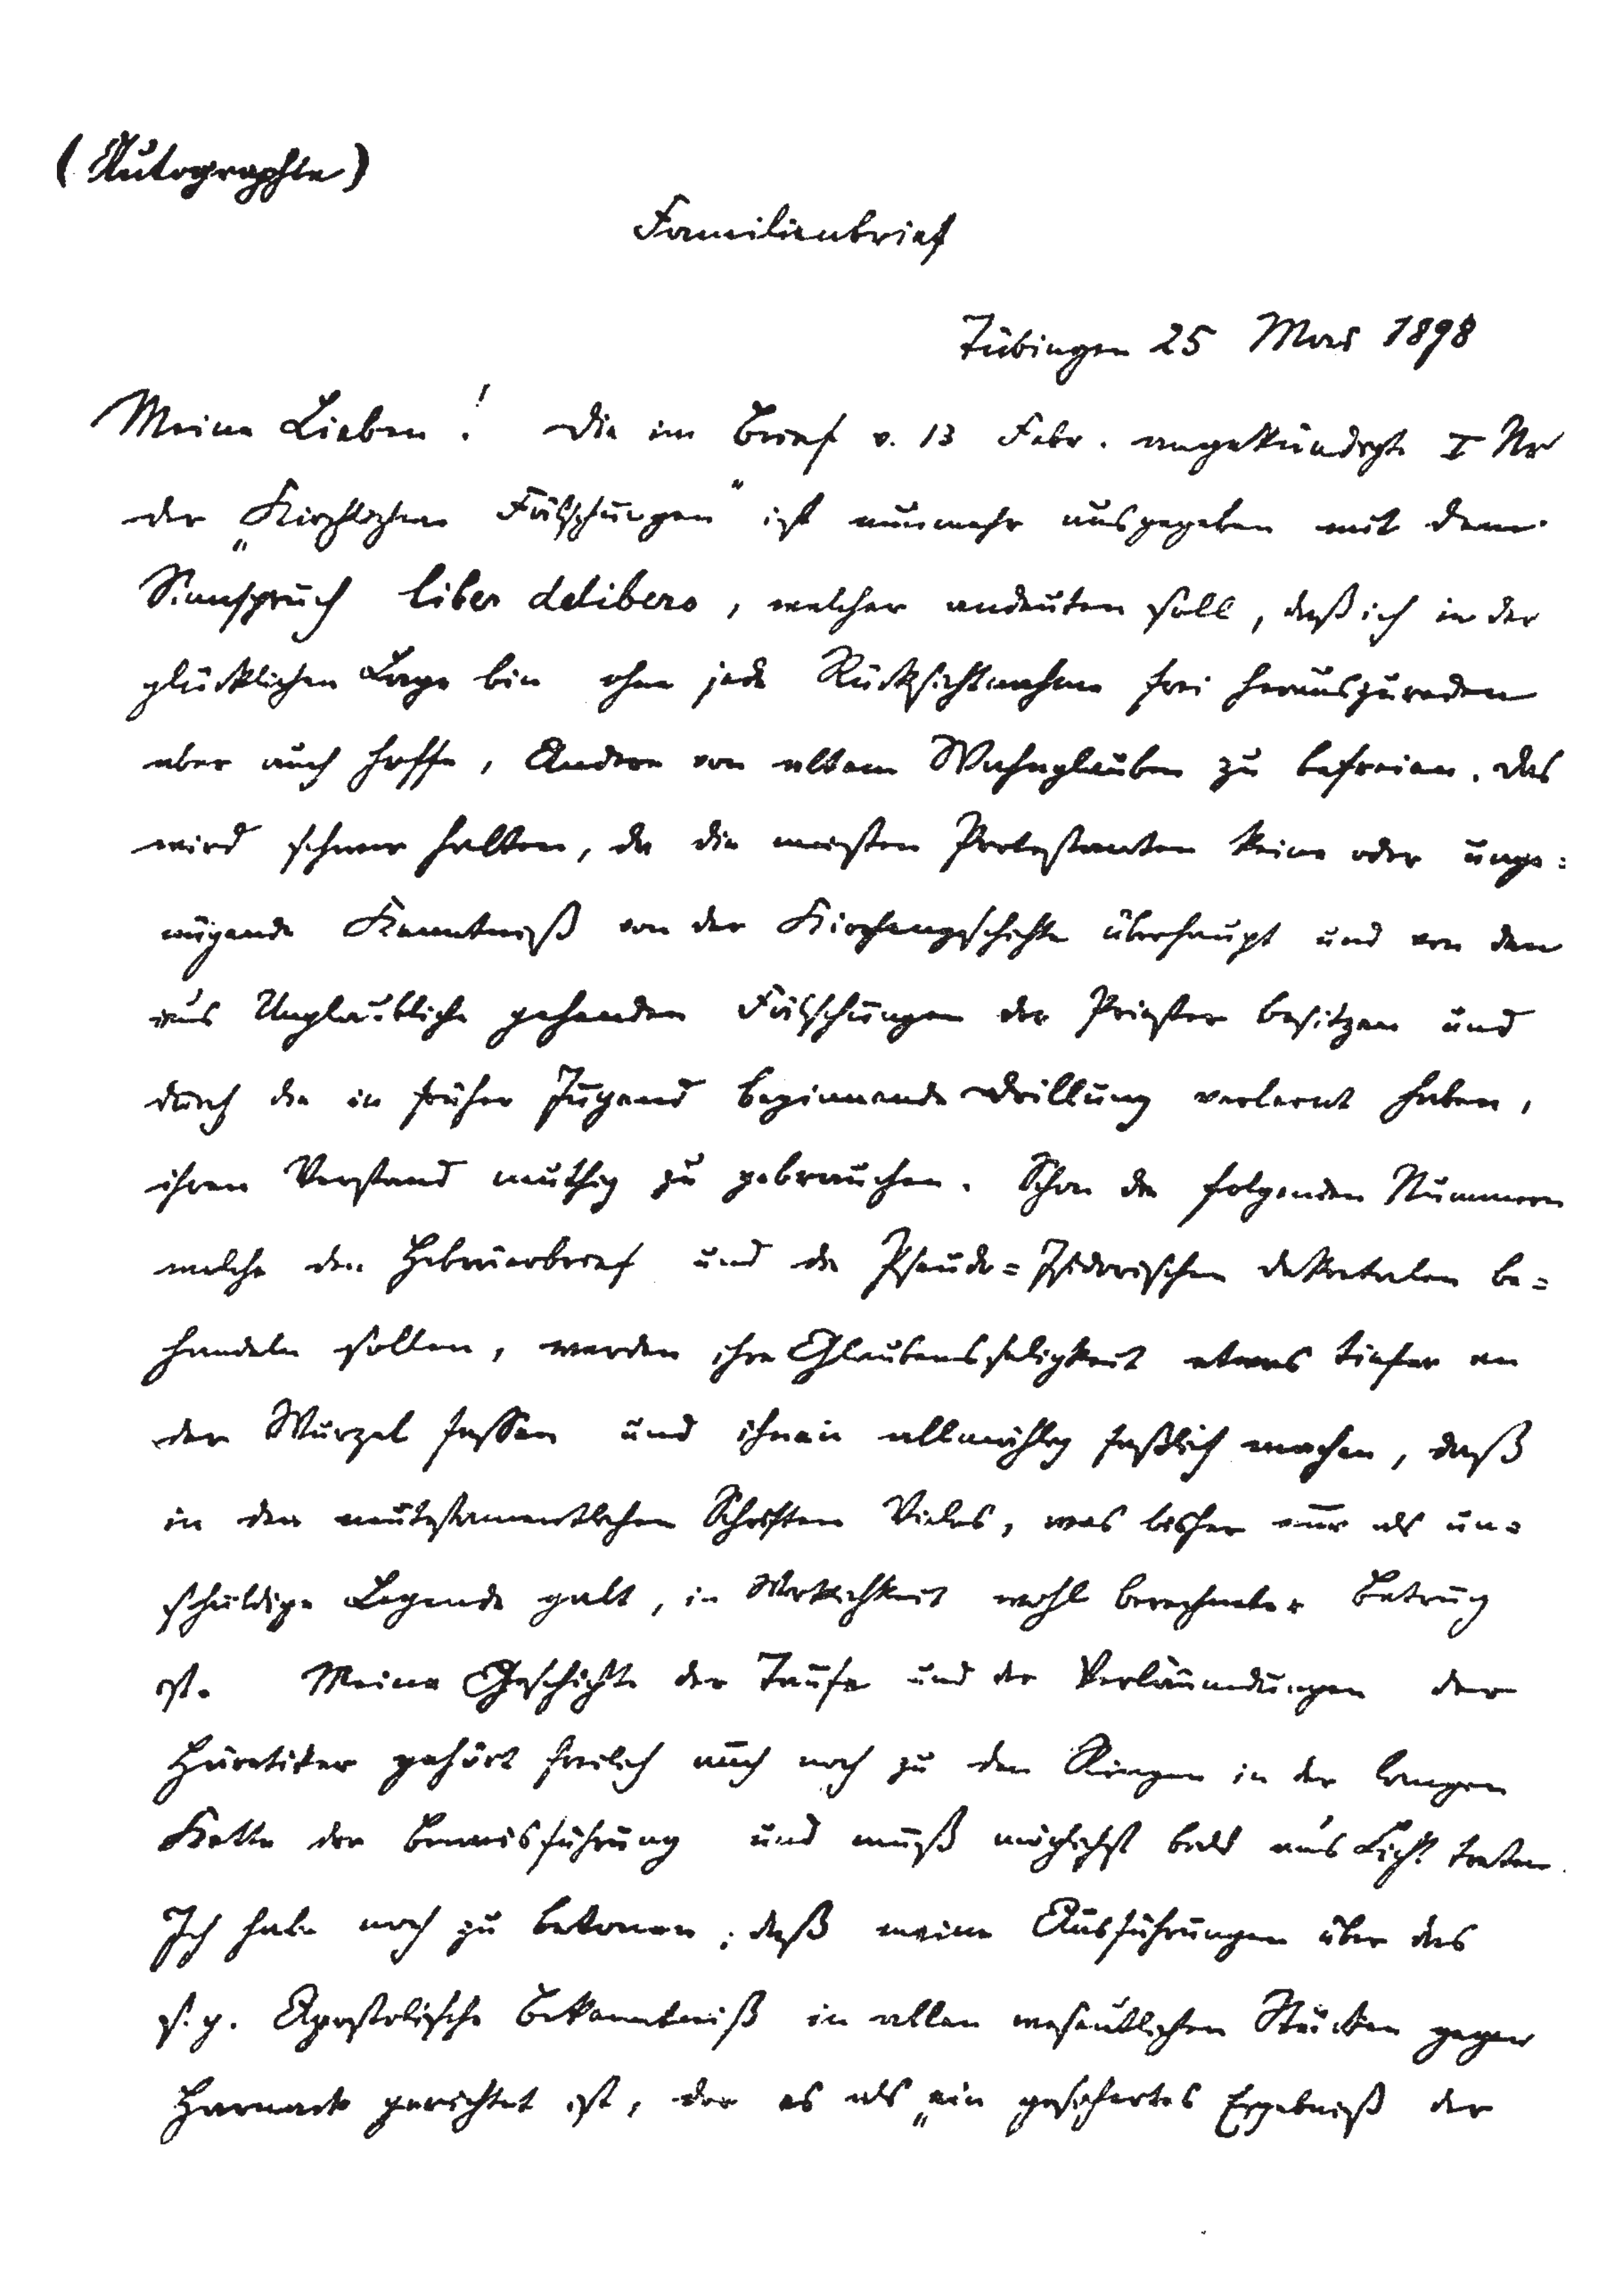 (Autographie)
Familienbrief
Tübingen 25 März 1898
Meine Lieben! Die im Brief v. 13 Febr. angekündigte I Nr
der „Kirchlichen Fälschungen“ ist nunmehr ausgegeben mit dem
Sinnspruch liber delibero, welcher andeuten soll, daß ich in der
glücklichen Lage bin ohne jede Rücksichtnahme frei herauszureden
aber auch hoffe, Andere von altem Wahnglauben zu befreien. Das
wird schwer halten, da die meisten Protestanten keine oder unge=
nügende Kenntniß von der Kirchengeschichte überhaupt und von den
ins Unglaubliche gehenden Fälschungen der Priester besitzen und
durch die in früher Jugend beginnende Drillung verlernt haben,
ihren Verstand muthig zu gebrauchen. Schon die folgenden Nummern
welche den Hebräerbrief und die Pseudo=Isidorischen Dekretalen be=
handeln sollen, werden ihre Glaubensseligkeit etwas tiefer an
der Wurzel fassen und ihnen allmählig faßlich machen, daß
in den neutestamentlichen Schriften Vieles, was bisher nur als un=
schuldige Legende galt, in Wirklichkeit wohl berechneter Betrug
ist. Meine Geschichte der Taufe und der Verläumdungen der
Häretiker gehört freilich auch noch zu den Ringen in der langen
Kette der Beweisführung und muß möglichst bald ans Licht treten.
Ich habe noch zu betonen, daß meine Ausführungen über das
s. g. Apostolische Bekenntniß in allen wesentlichen Stücken gegen
Harnack gerichtet ist, der es als „ein gesichertes Ergebniß der